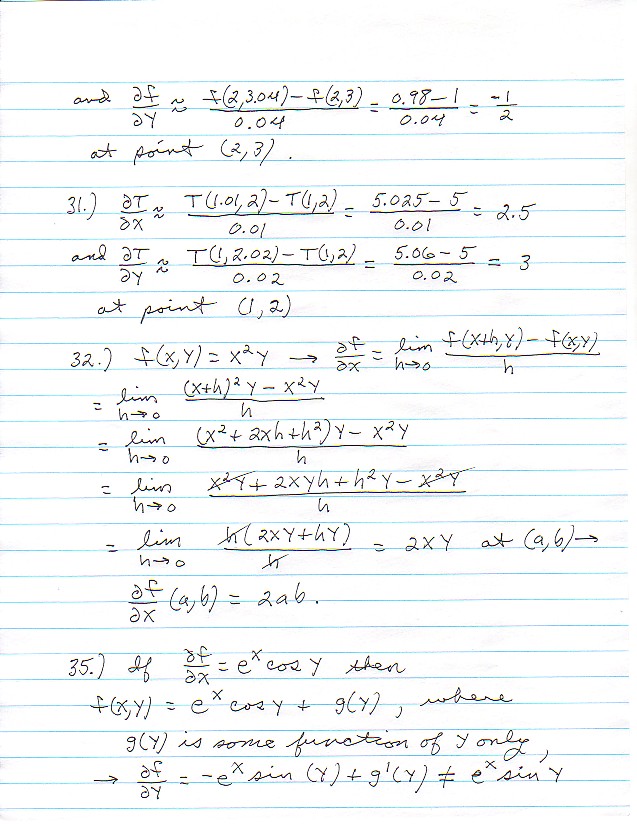 and ∂f/∂y ≈ f(2,3.04)-f(2,3)/0.04 = 0.98-1/0.04 = -1/2
at point (2,3).
31.) ∂T/∂x ≈ T(1.01,2)-T(1,2)/0.01 = 5.025-5/0.01 = 2.5
and ∂T/∂y ≈ T(1,2.02)-T(1,2)/0.02 = 5.06-5/0.02 = 3
at point (1,2)
32.) f(x,y) = x²y → ∂f/∂x = lim h→0 f(x+h,y)-f(x,y)/h
= lim h→0 (x+h)²y - x²y/h
= lim h→0 (x²+2xh+h²)y - x²y/h
= lim h→0 x²y+2xyh+h²y-x²y/h
= lim h→0 h(2xy+hy)/h = 2xy at (a,b) →
∂f/∂x (a,b) = 2ab.
35.) If ∂f/∂x = eˣ cos y then
f(x,y) = eˣ cos y + g(y), where
g(y) is some function of y only,
→ ∂f/∂y = -eˣ sin (y) + g'(y) ≠ eˣ sin y